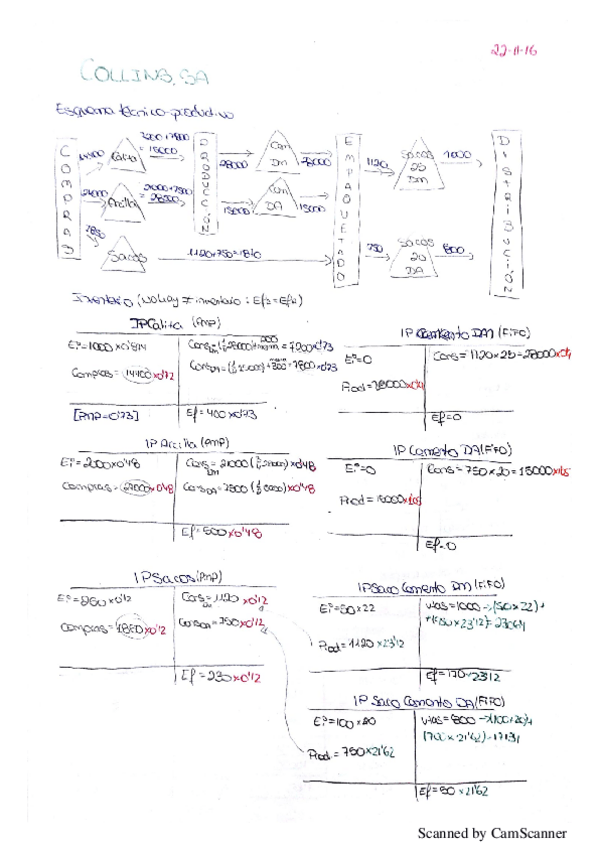 22-11-16
COLLINS, SA
Esquema técnico-productivo
COMPRAS
14400
Calita
7200+7800
= 15000
24000
Arcilla
21000+7500
= 28500
1850
Sacos
1120+750=1870
PRODUCCIÓN
28000
Cem
DM
28000
15000
Cem
DA
15000
EMPAQUETADO
1120
Sacos
25
DM
1000
750
Sacos
20
DA
800
DISTRIBUCIÓN
Inventario
IP Calita (PMP)
Eiº=1000x0'814
Compras=14400x0'72
[PMP=0'73]
= 7200x0'73
= 7800x0'73
Ef=400x0'73
IP Cemento DM (FIFO)
Eiº=0
Cons=1120x25=28000
Prod=28000
Ef=0
IP Arcilla (PMP)
Eiº=2000x0'48
Cons DM=21000
x0'48
Compras=27000x0'48
Cons DA=7500
x0'48
Ef=500x0'48
IP Cemento DA (FIFO)
Eiº=0
Cons=750x20=15000
Prod=15000
Ef=0
IP Sacos (PMP)
Eiº=250x0'12
Cons DM=1120x0'12
Compras=1850x0'12
Cons DA=750x0'12
Ef=230x0'12
IP Saco Cemento DM (FIFO)
Eiº=50x22
Vtas=1000→(50x22)+
Prod=1120x23'12
Ef=170x23'12
IP Saco Cemento DA (FIFO)
Eiº=100x20
Vtas=800→(100x20)+
(700x21'62)=17134
Prod=750x21'62
Ef=50x21'62
Scanned by CamScanner